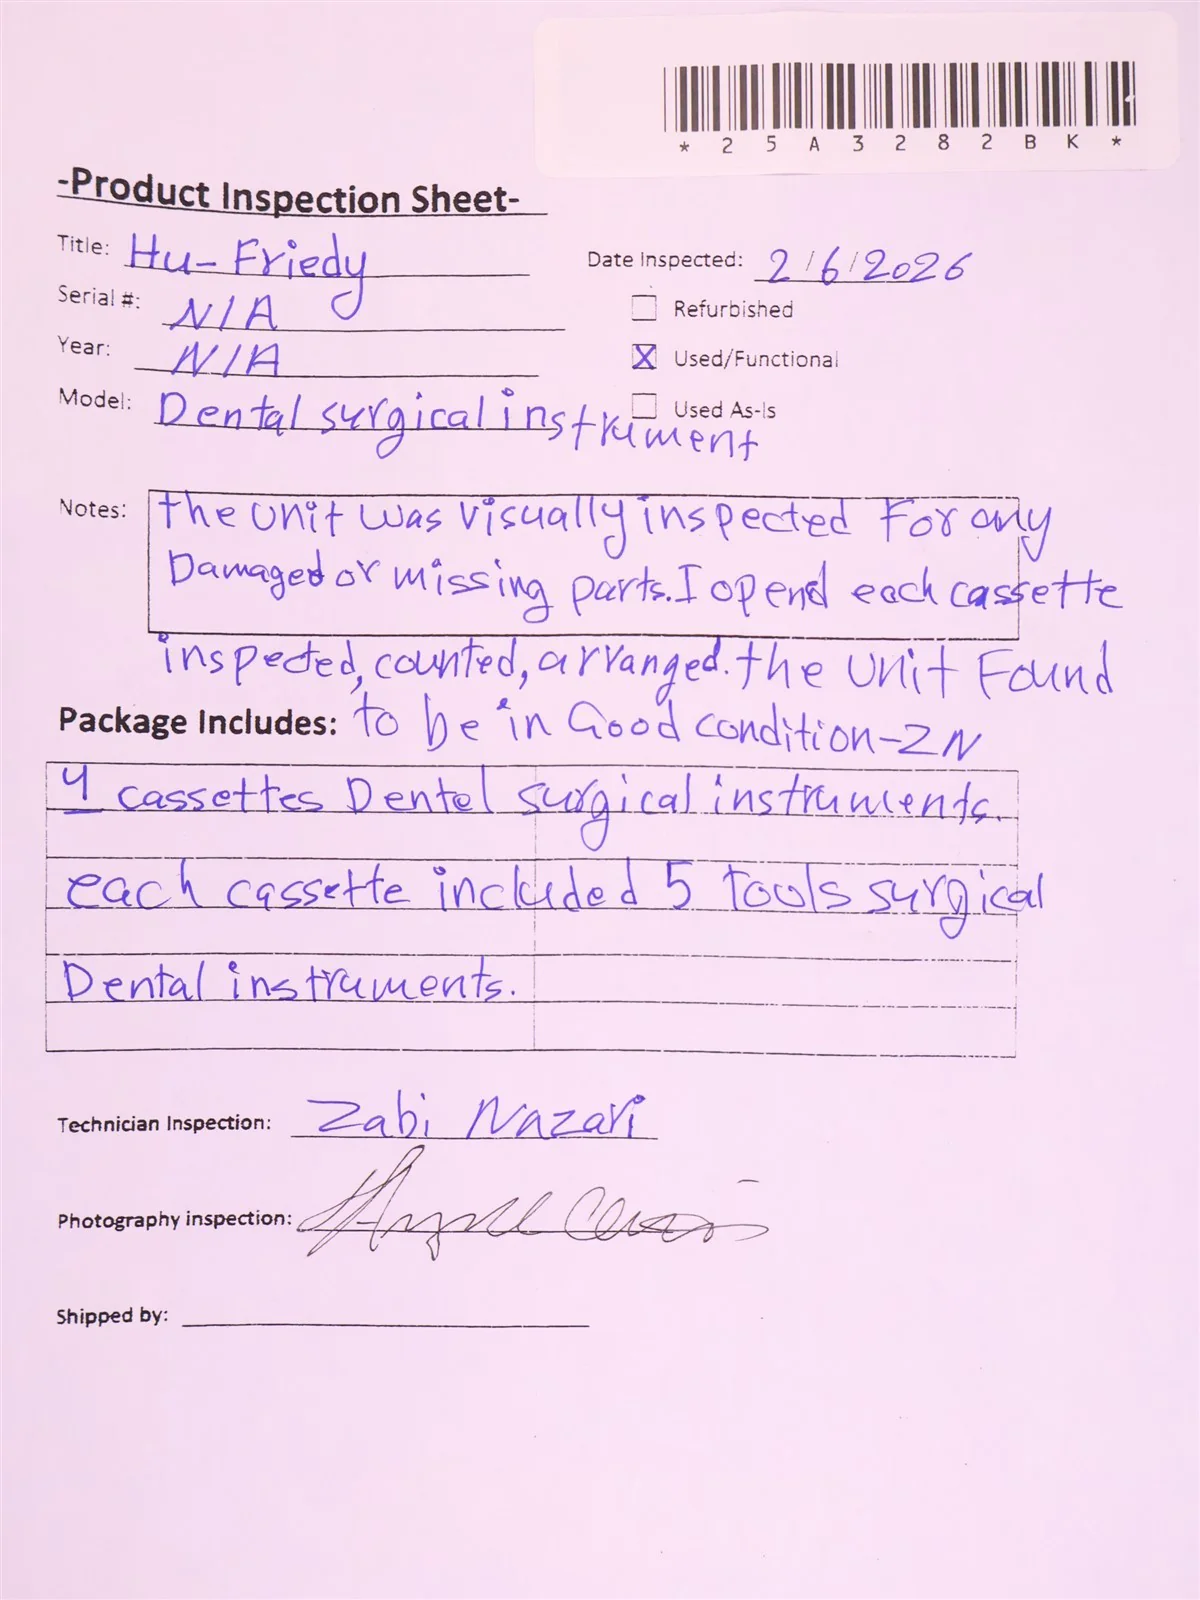 * 2 5 A 3 2 8 2 B K *
-Product Inspection Sheet-
Title: Hu-Friedy
Date Inspected: 2/6/2026
Serial #: N/A
Refurbished
Year: N/A
X Used/Functional
Model: Dental surgical instrument
Used As-Is
Notes: the unit was visually inspected For any
Damaged or missing parts. I opend each cassette
inspected, counted, arranged. the unit Found
Package Includes: to be in Good condition-ZN
4 cassettes Dentel surgical instruments.
each cassette included 5 tools surgical
Dental instruments.
Technician Inspection: Zabi Nazari
Photography inspection:
Shipped by: